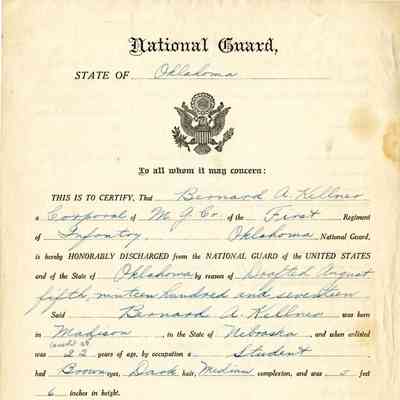 National Guard,
STATE OF Oklahoma
To all whom it may concern:
THIS IS TO CERTIFY, That Bernard A. Kellner
a Corporal of M. G. Co. of the First Regiment
of Infantry Oklahoma National Guard,
is hereby HONORABLY DISCHARGED from the NATIONAL GUARD of the UNITED STATES
and of the State of Oklahoma by reason of Drafted August
fifth, nineteen hundred and seventeen
Said Bernard A. Kellner was born
in Madison, in the State of Nebraska, and when enlisted
was 22 years of age, by occupation a Student
had Brown eyes, Dark hair, Medium complexion, and was 5 feet
6 inches in height.